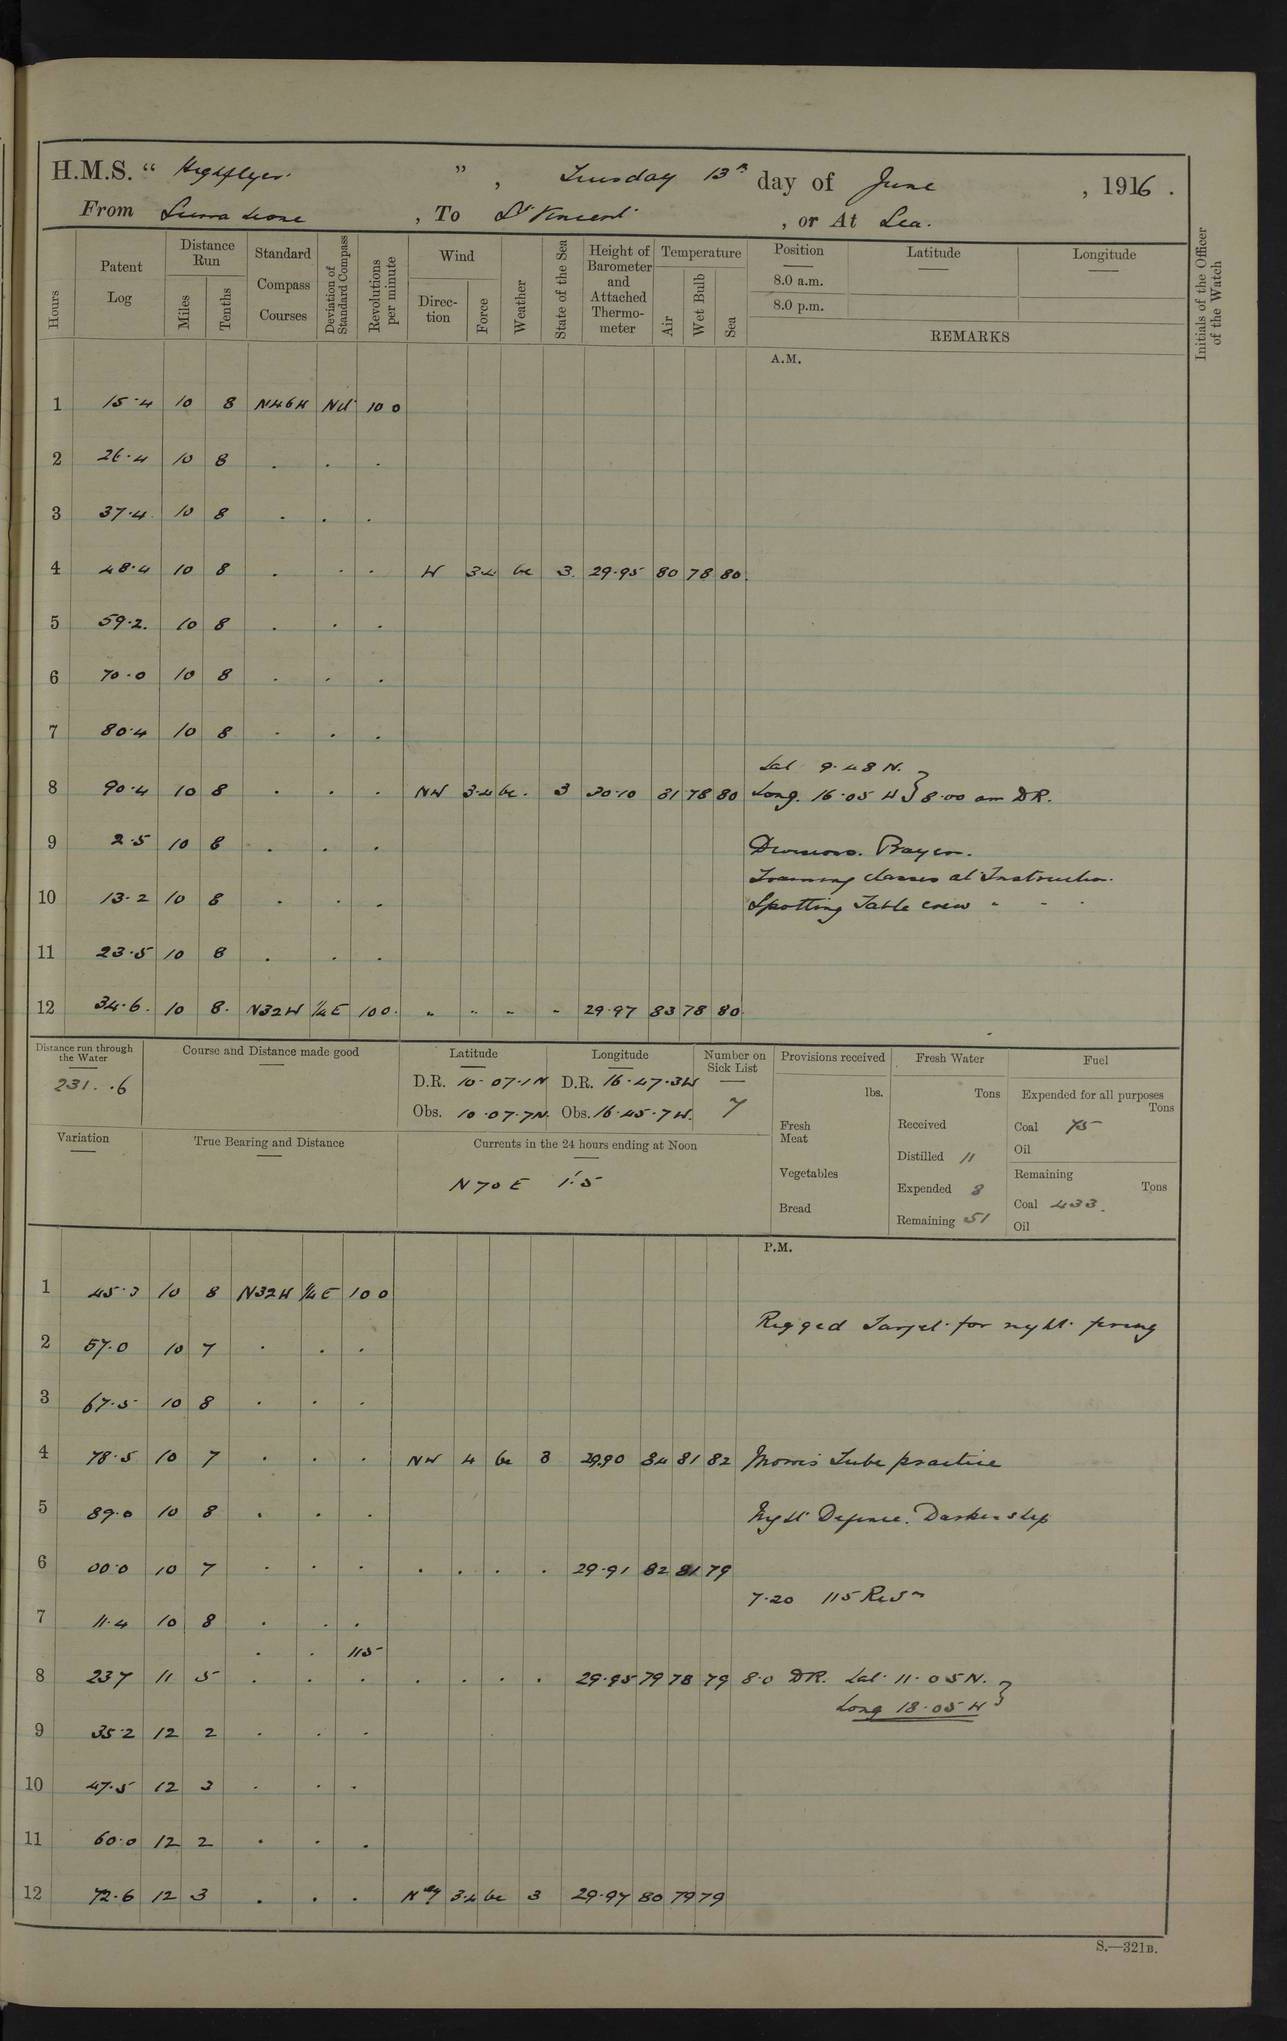 H.M.S. “ Highflyer ” , Tuesday 13th day of June , 1916 .
From Sierra Leone , To St Vincent , or At Sea.
Hours
Patent Log
Distance Run
Miles
Tenths
Standard Compass Courses
Deviation of Standard Compass
Revolutions per minute
Wind
Direction
Force
Weather
State of the Sea
Height of Barometer and Attached Thermometer
Temperature
Air
Wet Bulb
Sea
Position
8.0 a.m.
8.0 p.m.
Latitude
Longitude
REMARKS
Initials of the Officer of the Watch
A.M.
1 15.4 10 8 N46W Nil 100
2 26.4 10 8 . . .
3 37.4 10 8 . . .
4 48.4 10 8 . . . W 3.4 bc 3 29.95 80 78 80
5 59.2 10 8 . . .
6 70.0 10 8 . . .
7 80.4 10 8 . . .
Lat 9.48 N.
8 90.4 10 8 . . . NW 3.4 bc. 3 30.10 81 78 80 Long. 16.05 W } 8.00 am DR.
9 2.5 10 8 . . . Divisions. Prayers.
Training classes at Instruction.
10 13.2 10 8 . . . Spotting Table crew " - .
11 23.5 10 8 . . .
12 34.6. 10 8. N32W ¼E 100. " " " " 29.97 83 78 80
Distance run through the Water
231..6
Course and Distance made good
Latitude
D.R. 10.07.1N
Obs. 10.07.7N.
Longitude
D.R. 16.47.3W
Obs. 16.45.7W.
Number on Sick List
7
Provisions received
lbs.
Fresh Meat
Vegetables
Bread
Fresh Water
Tons
Received
Distilled 11
Expended 8
Remaining 51
Fuel
Expended for all purposes
Tons
Coal 75
Oil
Remaining
Tons
Coal 433.
Oil
Variation
True Bearing and Distance
Currents in the 24 hours ending at Noon
N70E 1'.5
P.M.
1 45.3 10 8 N32W ¼E 100
Rigged Target for night firing
2 57.0 10 7 . . .
3 67.5 10 8 . . .
4 78.5 10 7 . . . NW 4 bc 3 29.90 84 81 82 Morris Tube practice
5 89.0 10 8 . . . Night Defence. Darken ship
6 00.0 10 7 . . . . . . . 29.91 82 81 79
7.20 115 Revs
7 11.4 10 8 . . .
. . 115
8 23.7 11 5 . . . . . . . 29.95 79 78 79 8.0 DR. Lat. 11.05N. }
Long 18.05 W
9 35.2 12 2 . . .
10 47.5 12 3 . . .
11 60.0 12 2 . . .
12 72.6 12 3 . . . Nly 3.4 bc 3 29.97 80 79 79
S.—321B.